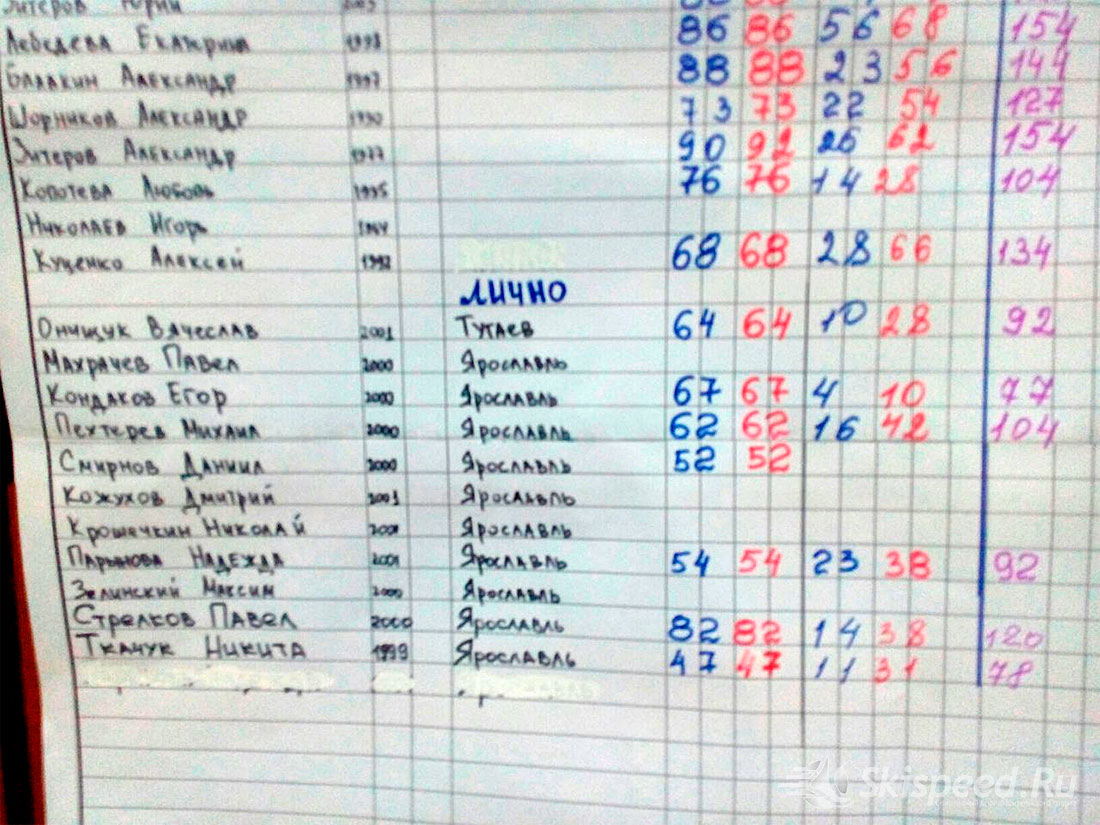 Энтеров Юрий 2003
Лебедева Екатерина 1998 86 86 56 68 154
Балакин Александр 1997 88 88 23 56 144
Шорников Александр 1990 73 73 22 54 127
Энтеров Александр 1977 90 92 26 62 154
Копотева Любовь 1995 76 76 14 28 104
Николаев Игорь
Куценко Алексей 1992 68 68 28 66 134
ЛИЧНО
Онищук Вячеслав 2001 Тутаев 64 64 10 28 92
Махрачев Павел 2000 Ярославль
Кондаков Егор 2000 Ярославль 67 67 4 10 77
Пехтерев Михаил 2000 Ярославль 62 62 16 42 104
Смирнов Даниил 2000 Ярославль 52 52
Кожухов Дмитрий 2001 Ярославль
Крошечкин Николай 2001 Ярославль
Парынова Надежда 2001 Ярославль 54 54 23 38 92
Зелинский Максим 2000 Ярославль
Стрелков Павел 2000 Ярославль 82 82 14 38 120
Ткачук Никита 1999 Ярославль 47 47 11 31 78
Skispeed.Ru